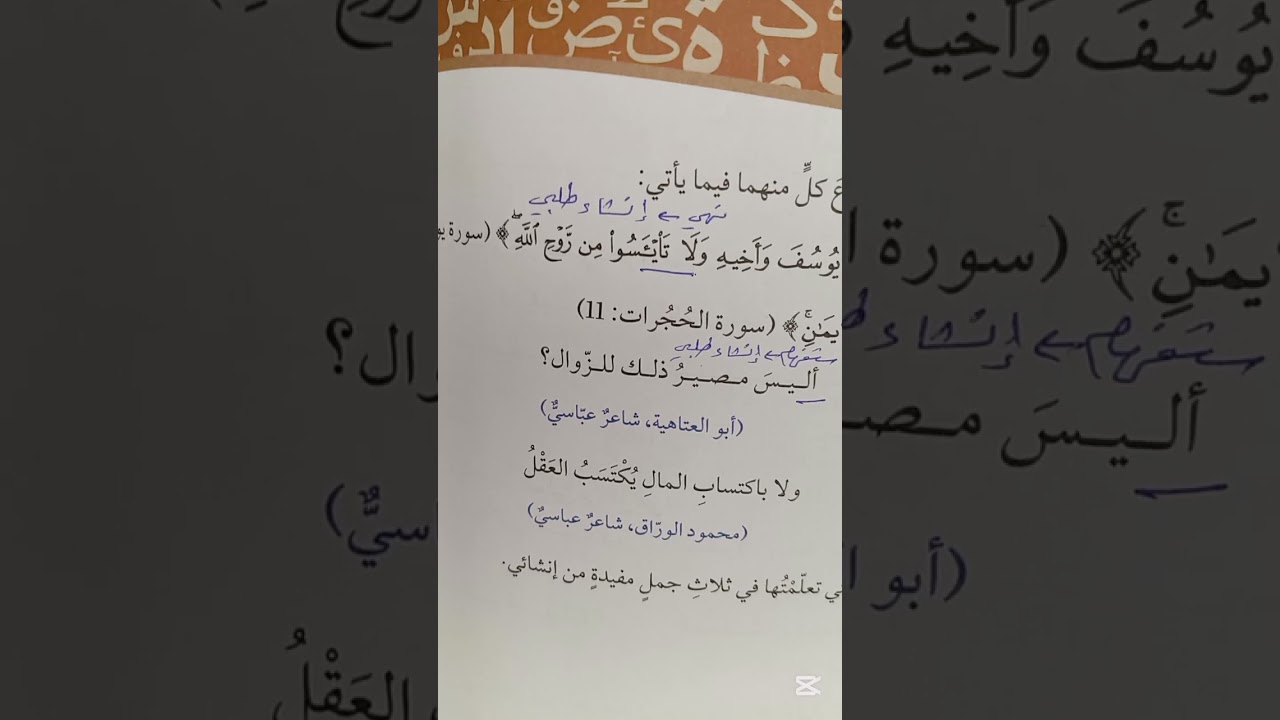 كلٍّ منهما فيما يأتي:
نهي ← إنشاء طلبي
يُوسُفَ وَأَخِيهِ وَلَا تَاْيْـَٔسُوا۟ مِن رَّوْحِ ٱللَّهِ ۖ﴾ (سورة
يمَـٰنِ ۚ﴾ (سورة الحُجُرات: 11)
ستفهام ← إنشاء طلبي
أليسَ مصيرُ ذلك للزّوال؟
(أبو العتاهية، شاعرٌ عبّاسيٌّ)
ولا باكتسابِ المالِ يُكْتَسَبُ العَقْلُ
(محمود الورّاق، شاعرٌ عباسيٌّ)
ي تعلّمْتُها في ثلاثِ جملٍ مفيدةٍ من إنشائي.